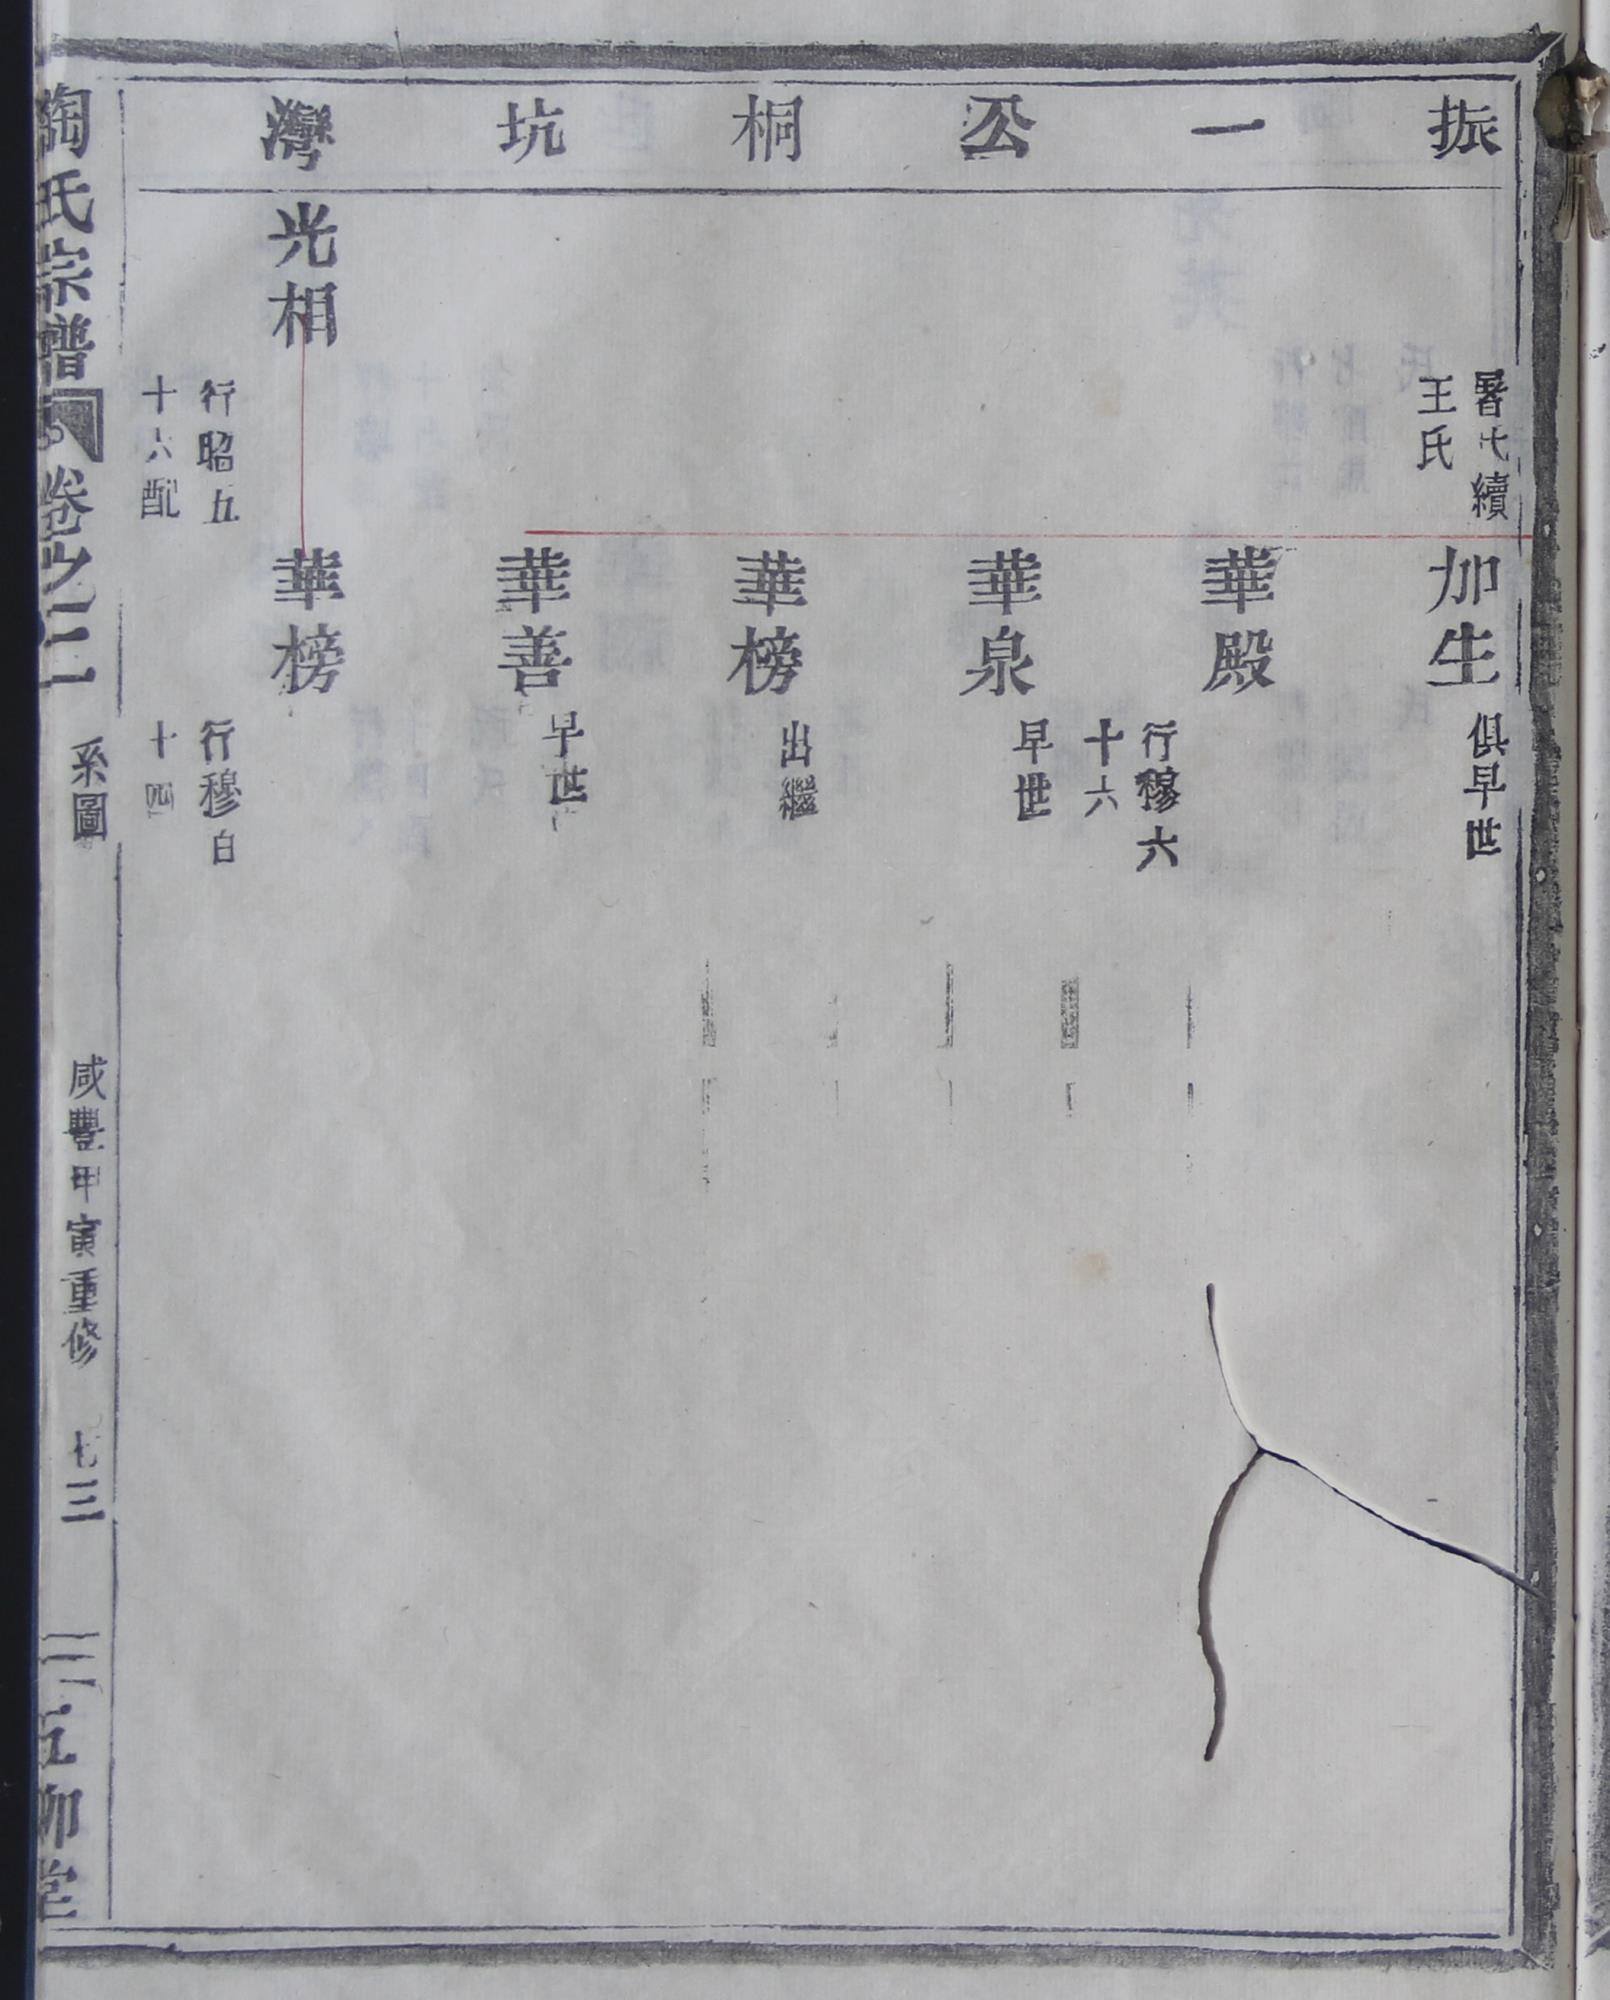 振一公桐坑灣
續
王氏
加生
俱早世
華殿
行穆六
十六
華泉
早世
華榜
出繼
華善
早世
光相
行昭五
十六配
華榜
行穆百
十四
陶氏宗譜
卷之二
系圖
咸豐甲寅重修
七三
五柳堂